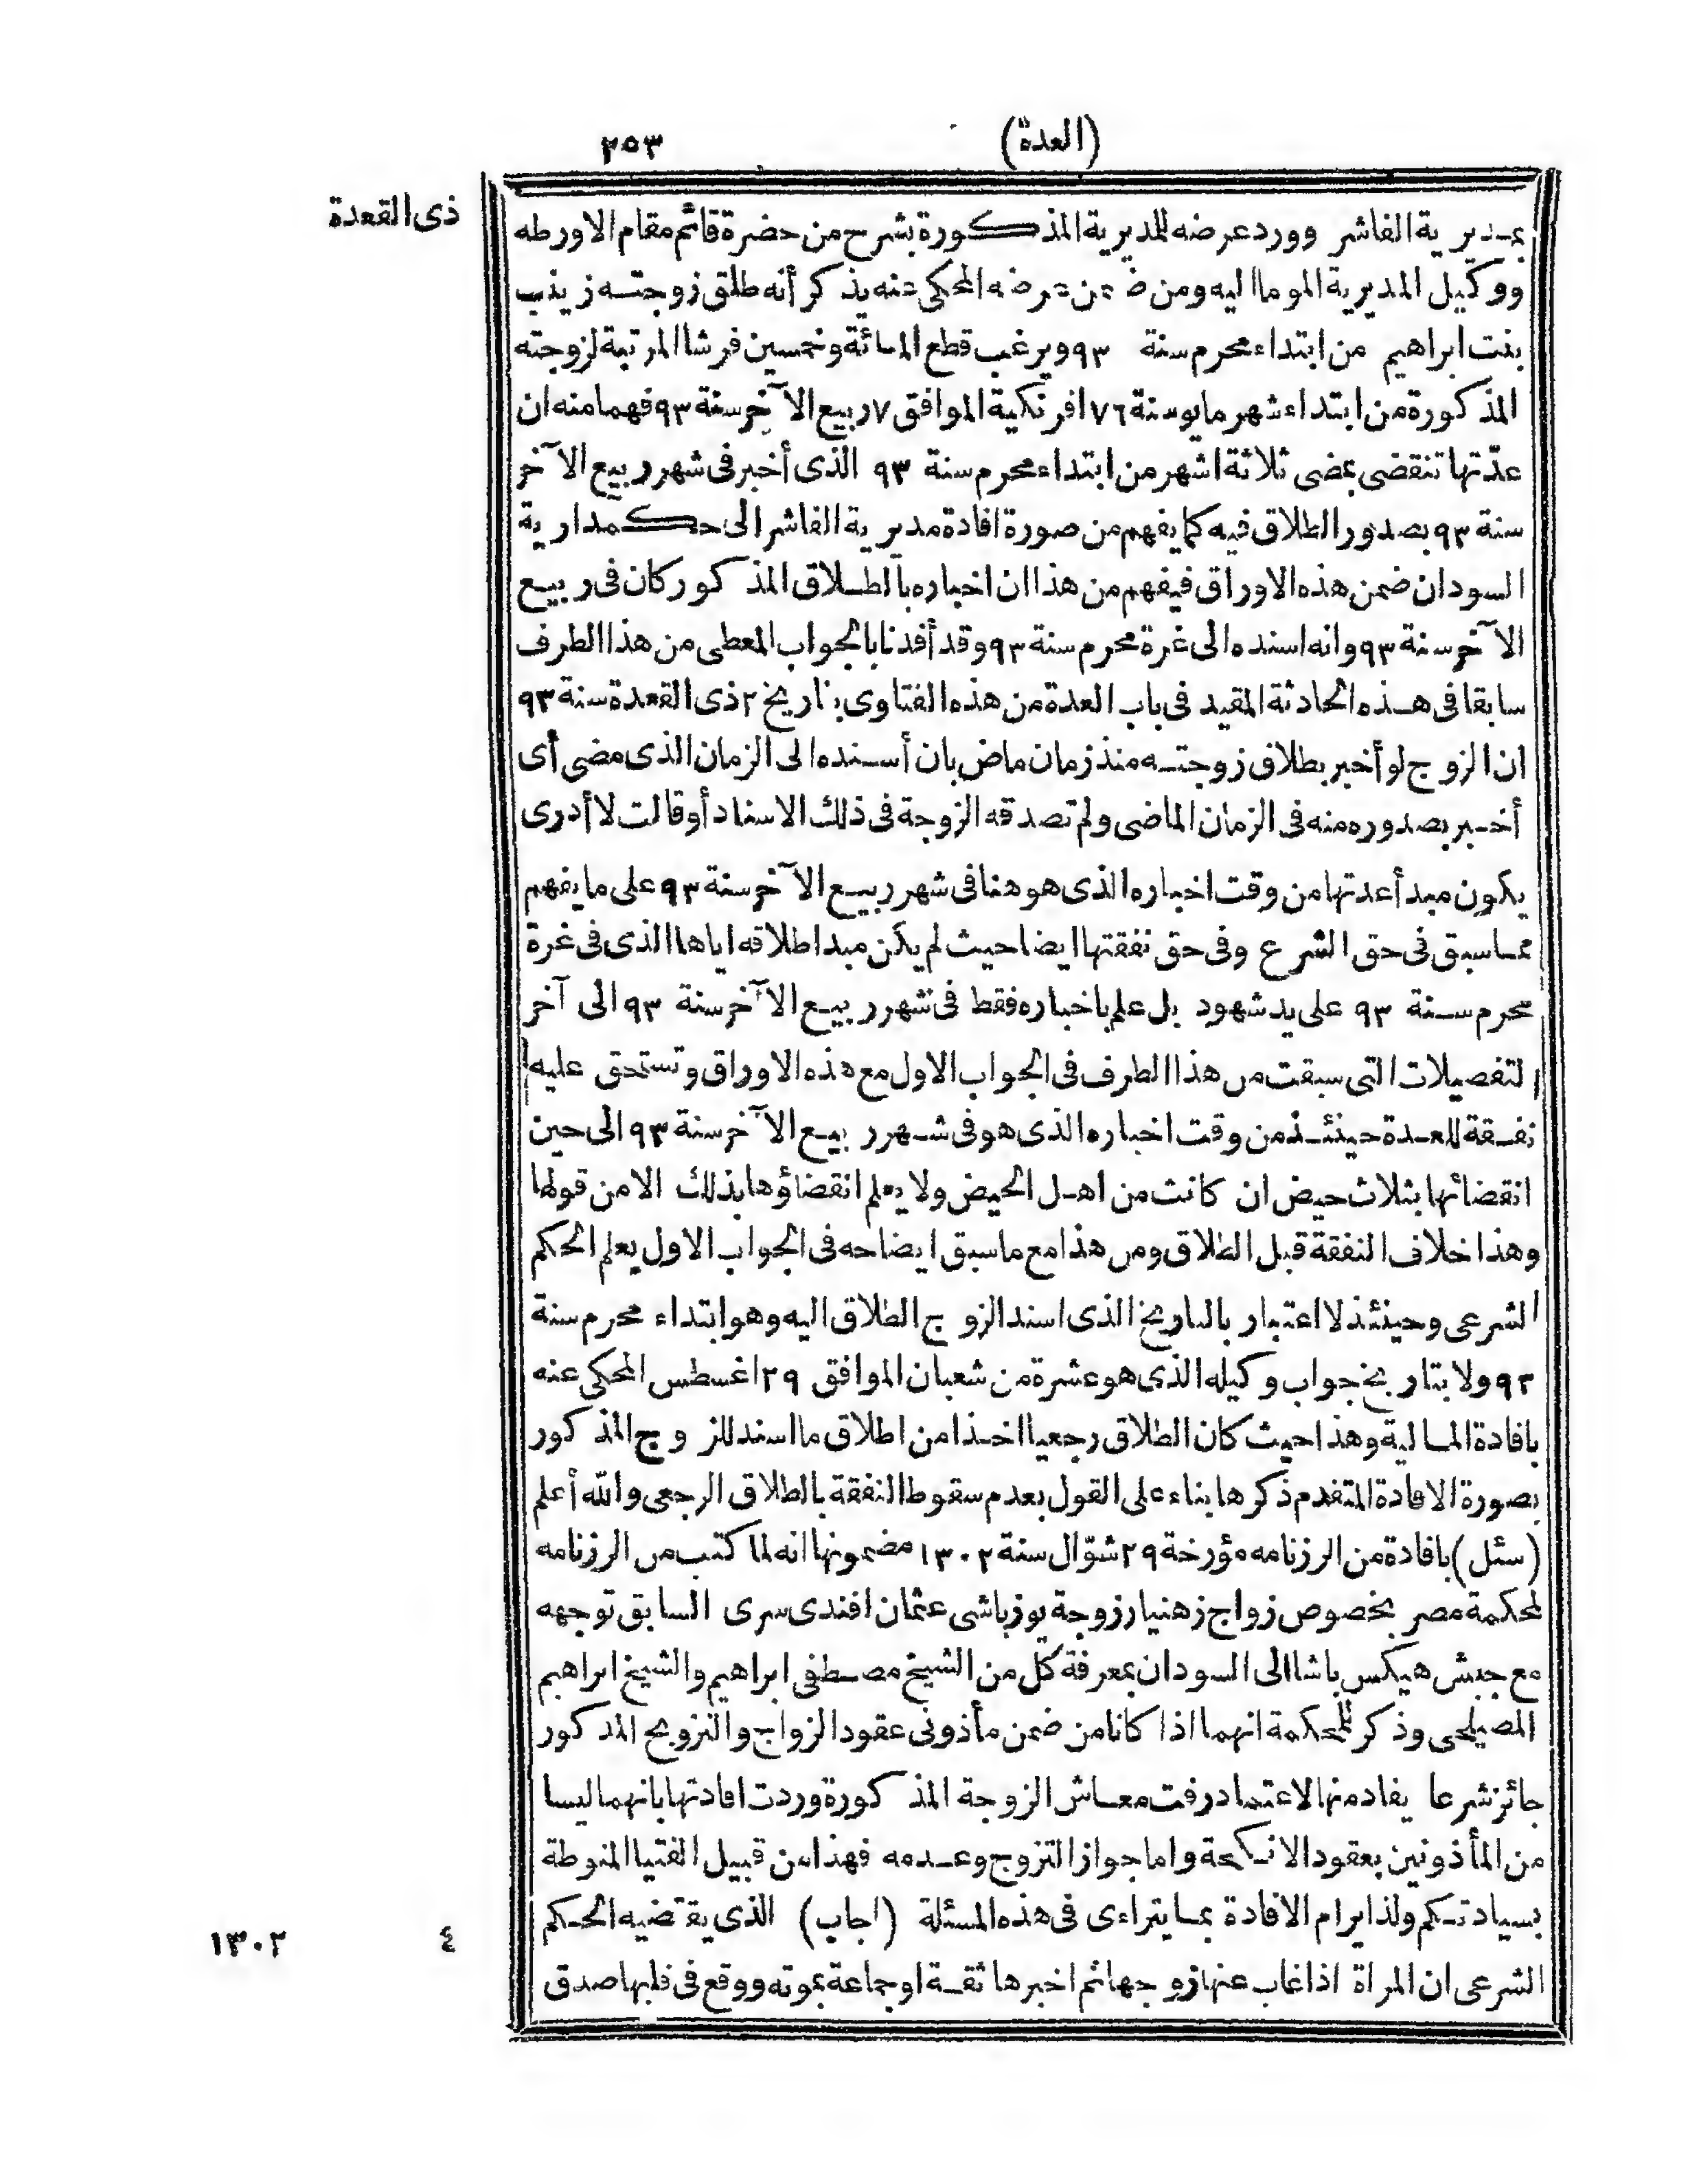 (العدة)
٢٥٣
ذى القعدة
بمديرية الفاشر وورد عرضه للمديرية المذكورة بشرح من حضرة قائم مقام الاورطه
ووكيل المديرية الموما اليه ومن ضمن عرضه المحكى عنه يذكر أنه طلق زوجته زينب
بنت ابراهيم من ابتداء محرم سنة ٩٣ ويرغب قطع المائة وخمسين قرشا المرتبة لزوجته
المذكورة من ابتداء شهر مايو سنة ٧٦ افرنكية الموافق ٧ ربيع الآخر سنة ٩٣ فهما منه ان
عدّتها تنقضى بمضى ثلاثة اشهر من ابتداء محرم سنة ٩٣ الذى أخبر فى شهر ربيع الآخر
سنة ٩٣ بصدور الطلاق فيه كما يفهم من صورة افادة مديرية الفاشر الى حكمدارية
السودان ضمن هذه الاوراق فيفهم من هذا ان اخباره بالطلاق المذكور كان فى ربيع
الآخر سنة ٩٣ وانه اسنده الى غرة محرم سنة ٩٣ وقد أفدنا بالجواب المعطى من هذا الطرف
سابقا فى هذه الحادثة المقيد فى باب العدة من هذه الفتاوى بتاريخ ٢ ذى القعدة سنة ٩٣
ان الزوج لو أخبر بطلاق زوجته منذ زمان ماض بان أسنده الى الزمان الذى مضى أى
أخبر بصدوره منه فى الزمان الماضى ولم تصدقه الزوجة فى ذلك الاسناد أو قالت لا أدرى
يكون مبدأ عدتها من وقت اخباره الذى هو هنا فى شهر ربيع الآخر سنة ٩٣ على ما يفهم
مما سبق فى حق الشرع وفى حق نفقتها ايضا حيث لم يكن مبدا طلاقه اياها الذى فى غرة
محرم سنة ٩٣ على يد شهود بل علم باخباره فقط فى شهر ربيع الآخر سنة ٩٣ الى آخر
التفصيلات التى سبقت من هذا الطرف فى الجواب الاول مع هذه الاوراق وتستحق عليه
نفقة للعدة حينئذ من وقت اخباره الذى هو فى شهر ربيع الآخر سنة ٩٣ الى حين
انقضائها بثلاث حيض ان كانت من اهل الحيض ولا يعلم انقضاؤها بذلك الا من قولها
وهذا خلاف النفقة قبل الطلاق ومن هذا مع ما سبق ايضاحه فى الجواب الاول يعلم الحكم
الشرعى وحينئذ لا اعتبار بالتاريخ الذى اسند الزوج الطلاق اليه وهو ابتداء محرم سنة
٩٣ ولا بتاريخ جواب وكيله الذى هو عشرة من شعبان الموافق ٢٩ اغسطس المحكى عنه
بافادة المالية وهذا حيث كان الطلاق رجعيا اخذا من اطلاق ما اسند للزوج المذكور
بصورة الافادة المتقدم ذكرها بناء على القول بعدم سقوط النفقة بالطلاق الرجعى والله أعلم
(سئل) بافادة من الرزنامه مؤرخة ٢٩ شوّال سنة ١٣٠٢ مضمونها انه لما كتب من الرزنامه
لمحكمة مصر بخصوص زواج زهنيار زوجة يوزباشى عثمان افندى سرى السابق توجهه
مع جيش هيكس باشا الى السودان بمعرفة كل من الشيخ مصطفى ابراهيم والشيخ ابراهيم
المصيلحى وذكر للمحكمة انهما اذا كانا من ضمن مأذونى عقود الزواج والتزويج المذكور
جائز شرعا يفاد منها الاعتماد رفت معاش الزوجة المذكورة وردت افادتها بانهما ليسا
من المأذونين بعقود الانكحة واما جواز التزوج وعدمه فهذا من قبيل الفتيا المنوطة
بسيادتكم ولذا يرام الافادة بما يتراءى فى هذه المسئلة (اجاب) الذى يقتضيه الحكم
٤ ١٣٠٢
الشرعى ان المراة اذا غاب عنها زوجها ثم اخبرها ثقة او جماعة بموته ووقع فى قلبها صدق